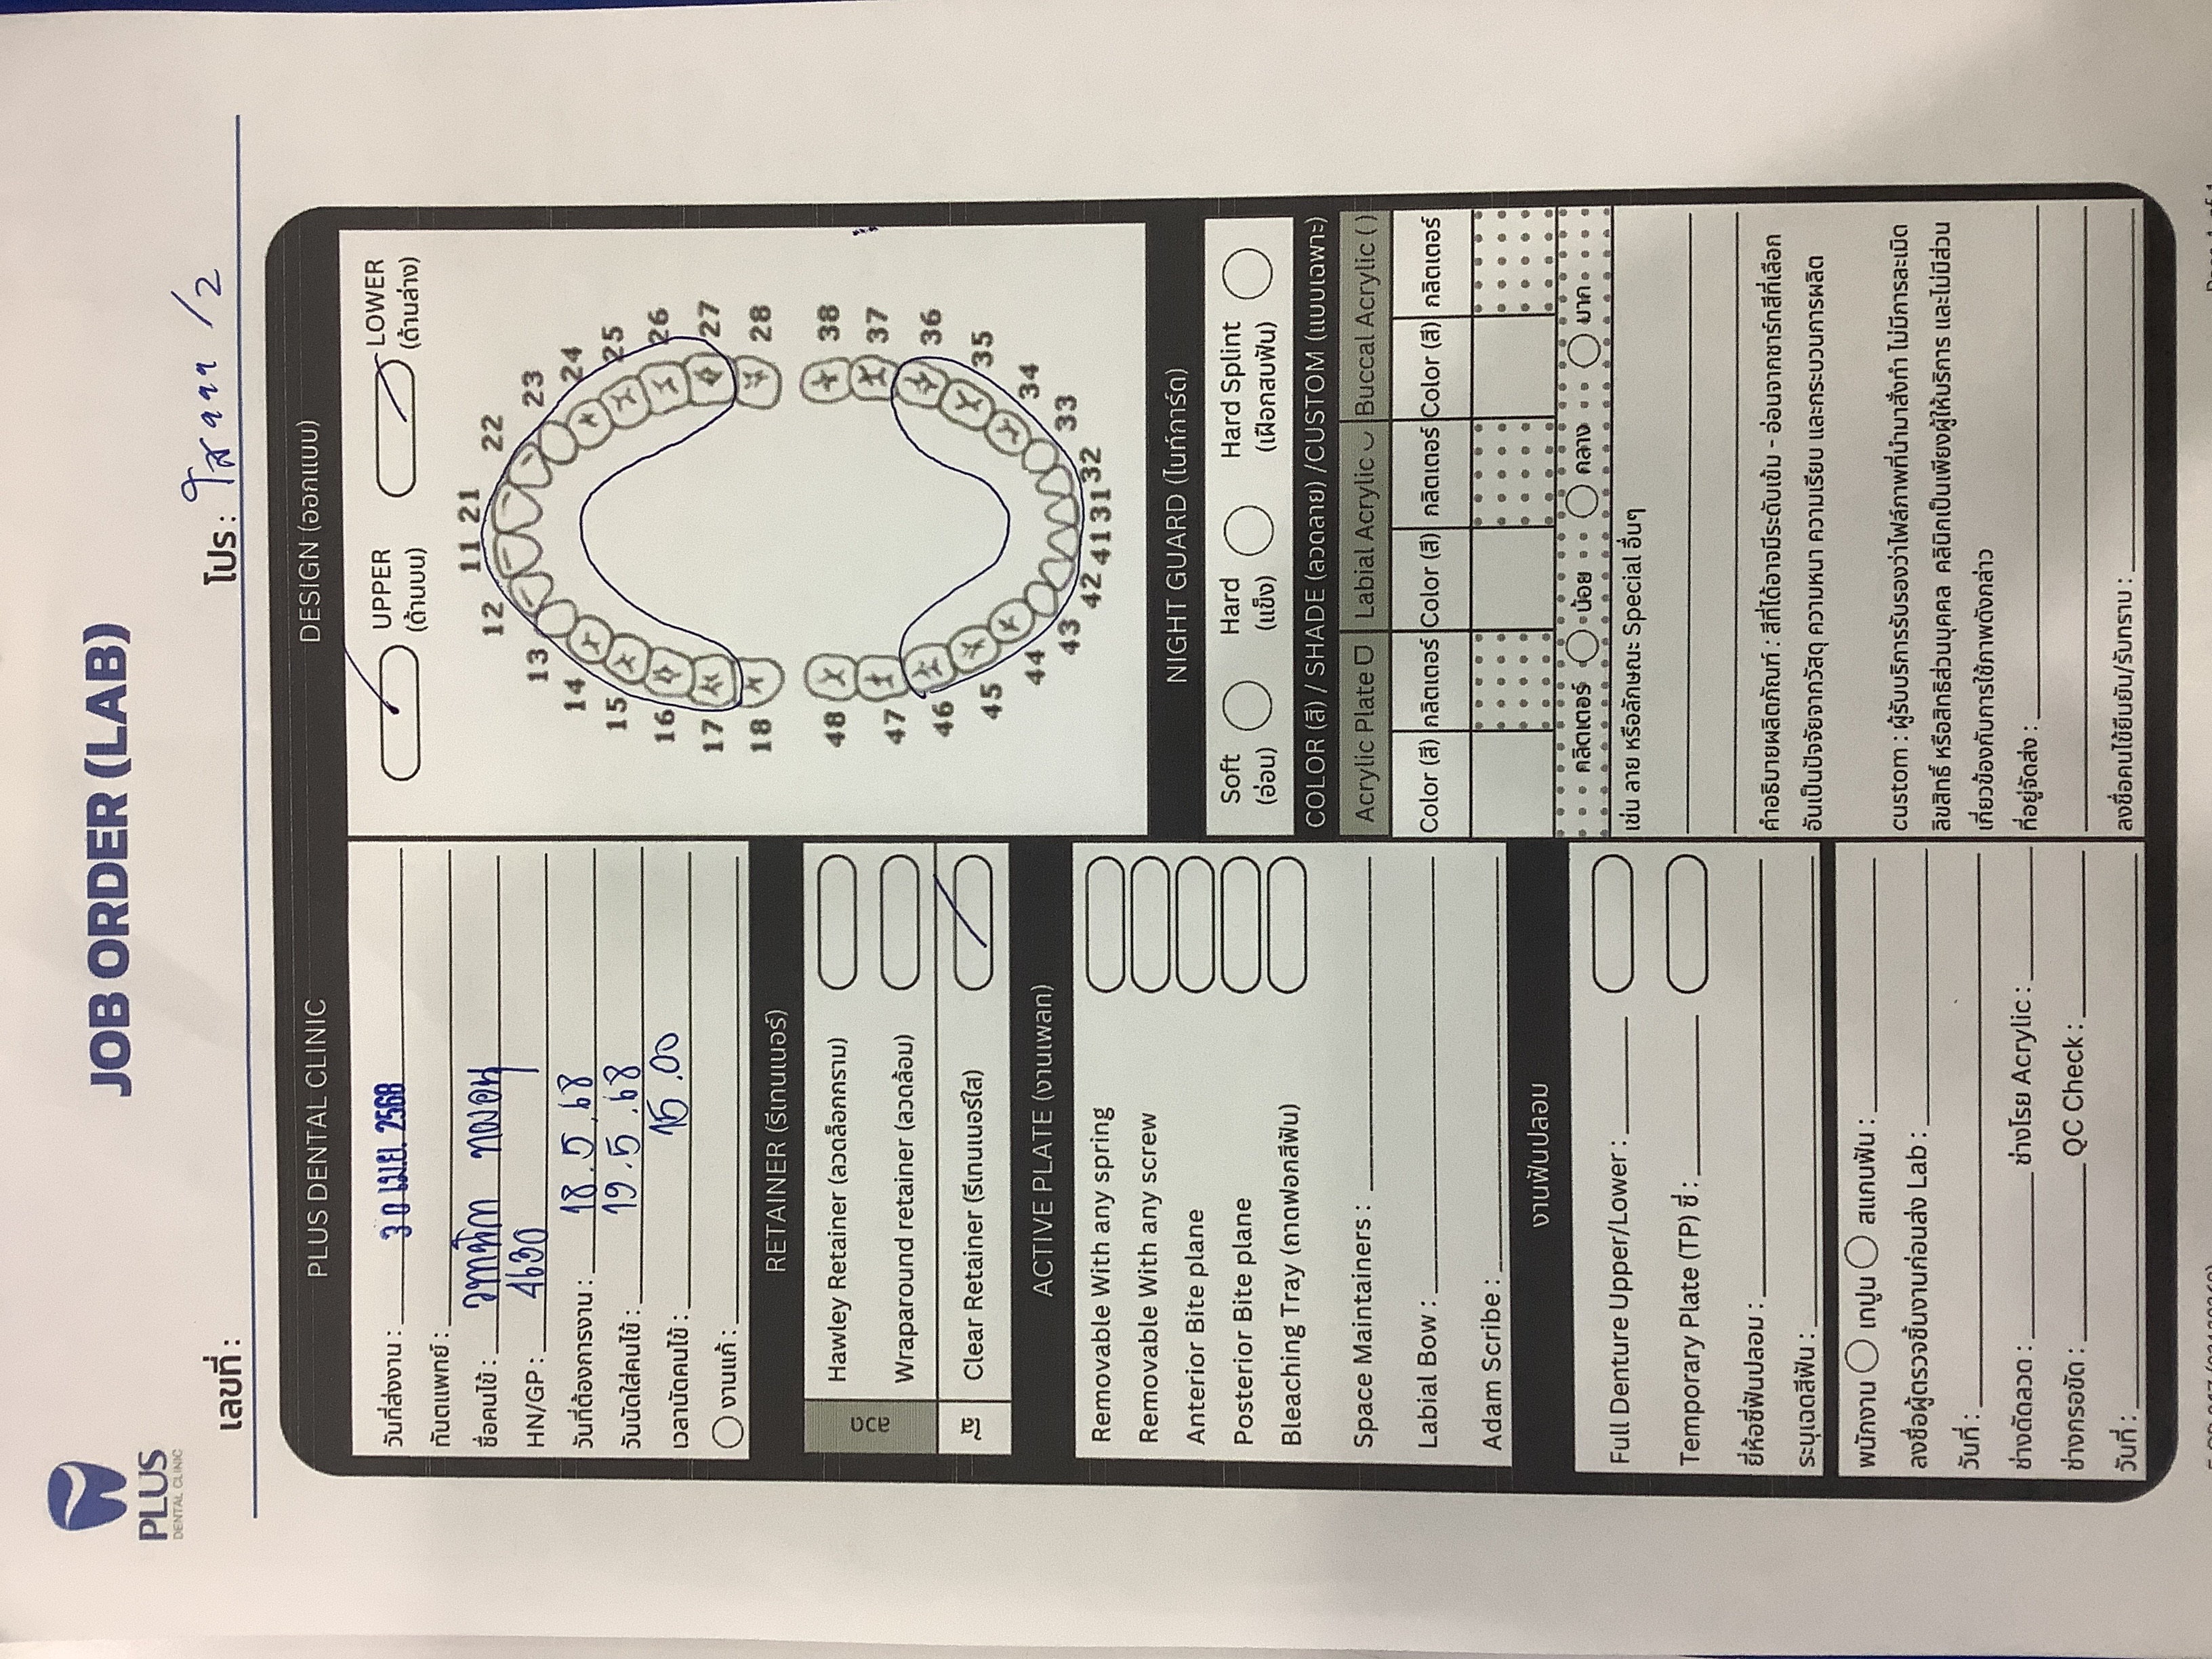 PLUS
DENTAL CLINIC
JOB ORDER (LAB)
เลขที่ :
โปร : ใส 999 /2
PLUS DENTAL CLINIC
วันที่ส่งงาน : 30 เม.ย. 2568
ทันตแพทย์ :
ชื่อคนไข้ :
HN/GP : 4630
วันที่ต้องการงาน : 18.5.68
วันนัดใส่คนไข้ : 19.5.68
เวลานัดคนไข้ : 15.00
งานแก้ :
RETAINER (รีเทนเนอร์)
ลวด
Hawley Retainer (ลวดล็อกกราม)
Wraparound retainer (ลวดล้อม)
ใส
Clear Retainer (รีเทนเนอร์ใส)
ACTIVE PLATE (งานเพลท)
Removable With any spring
Removable With any screw
Anterior Bite plane
Posterior Bite plane
Bleaching Tray (ถาดฟอกสีฟัน)
Space Maintainers :
Labial Bow :
Adam Scribe :
งานฟันปลอม
Full Denture Upper/Lower :
Temporary Plate (TP) ซี่ :
ยี่ห้อซี่ฟันปลอม :
ระบุเฉดสีฟัน :
พนักงาน เทปูน สแกนฟัน :
ลงชื่อผู้ตรวจชิ้นงานก่อนส่ง Lab :
วันที่ :
ช่างดัดลวด : ช่างโรย Acrylic :
ช่างกรอขัด : QC Check :
วันที่ :
DESIGN (ออกแบบ)
UPPER
(ด้านบน)
LOWER
(ด้านล่าง)
11 21
12 22
13 23
14 24
15 25
16 26
17 27
18 28
48 38
47 37
46 36
45 35
44 34
43 33
42 41 31 32
NIGHT GUARD (ไนท์การ์ด)
Soft Hard Hard Splint
(อ่อน) (แข็ง) (เฝือกสบฟัน)
COLOR (สี) / SHADE (ลวดลาย) /CUSTOM (แบบเฉพาะ)
Acrylic Plate Labial Acrylic Buccal Acrylic ( )
Color (สี) กลิตเตอร์ Color (สี) กลิตเตอร์ Color (สี) กลิตเตอร์
กลิตเตอร์ น้อย กลาง มาก
เช่น ลาย หรือลักษณะ Special อื่นๆ
คำอธิบายผลิตภัณฑ์ : สีที่ได้อาจมีระดับเข้ม - อ่อนจากชาร์ทสีที่เลือก
อันเป็นปัจจัยจากวัสดุ ความหนา ความเรียบ และกระบวนการผลิต
custom : ผู้รับบริการรับรองว่าไฟล์ภาพที่นำมาสั่งทำ ไม่มีการละเมิด
ลิขสิทธิ์ หรือสิทธิส่วนบุคคล คลินิกเป็นเพียงผู้ให้บริการ และไม่มีส่วน
เกี่ยวข้องกับการใช้ภาพดังกล่าว
ที่อยู่จัดส่ง :
ลงชื่อคนไข้ยืนยัน/รับทราบ :